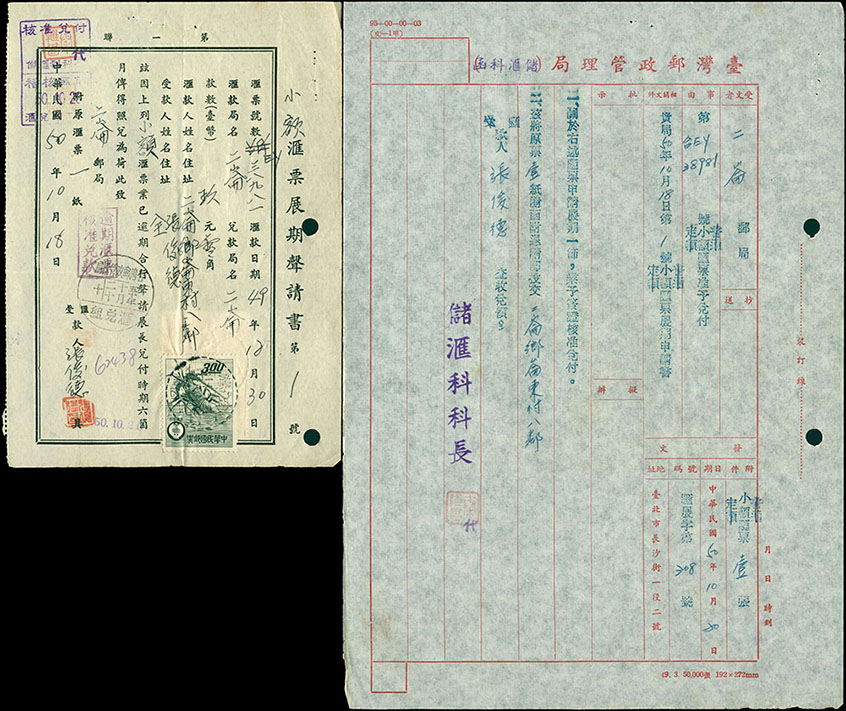 第一聯
核准兌付
小額匯票展期聲請書 第 1 號
匯款日期 49 年 12 月 30 日
匯款局名 二崙 兌款局名 二崙
款數(臺幣) 玖 元 零 角
匯款人姓名住址 二崙鄉崙東村八鄰
張俊德
受款人姓名住址 仝
茲因上列小額匯票業已逾期合行聲請展長兌付時期六箇
月俾得照兌為荷此致
二崙 郵局
附原匯票一紙
中華民國 50 年 10 月 18 日
逾期匯票
核准兌款
匯兌組
62438
匯
受 款人 張俊德 具
50.10.2
3.00
中華民國郵票
95-00-00-03
臺灣郵政管理局(儲匯科函)
受文者 二崙 郵局
抄送
事由
第 GEY 38981 號小額匯票准予兌付
相關文件
貴局50年10月18日第 1 號小額匯票展期申請書
批示
擬辦
一、關於右述匯票申請展期一節,業予登證核准兌付。
二、茲將原票壹紙隨函附還請即投交 二崙鄉崙東村八鄰
張俊德 查收兌領。
儲匯科科長
代
裝訂線
發文
附件 小額匯票 壹 張
日期 中華民國 50 年 10 月 20 日
號碼 匯展字第 308 號
地址 臺北市長沙街一段二號
月 日 時到
49. 3. 50,000張 192×272mm